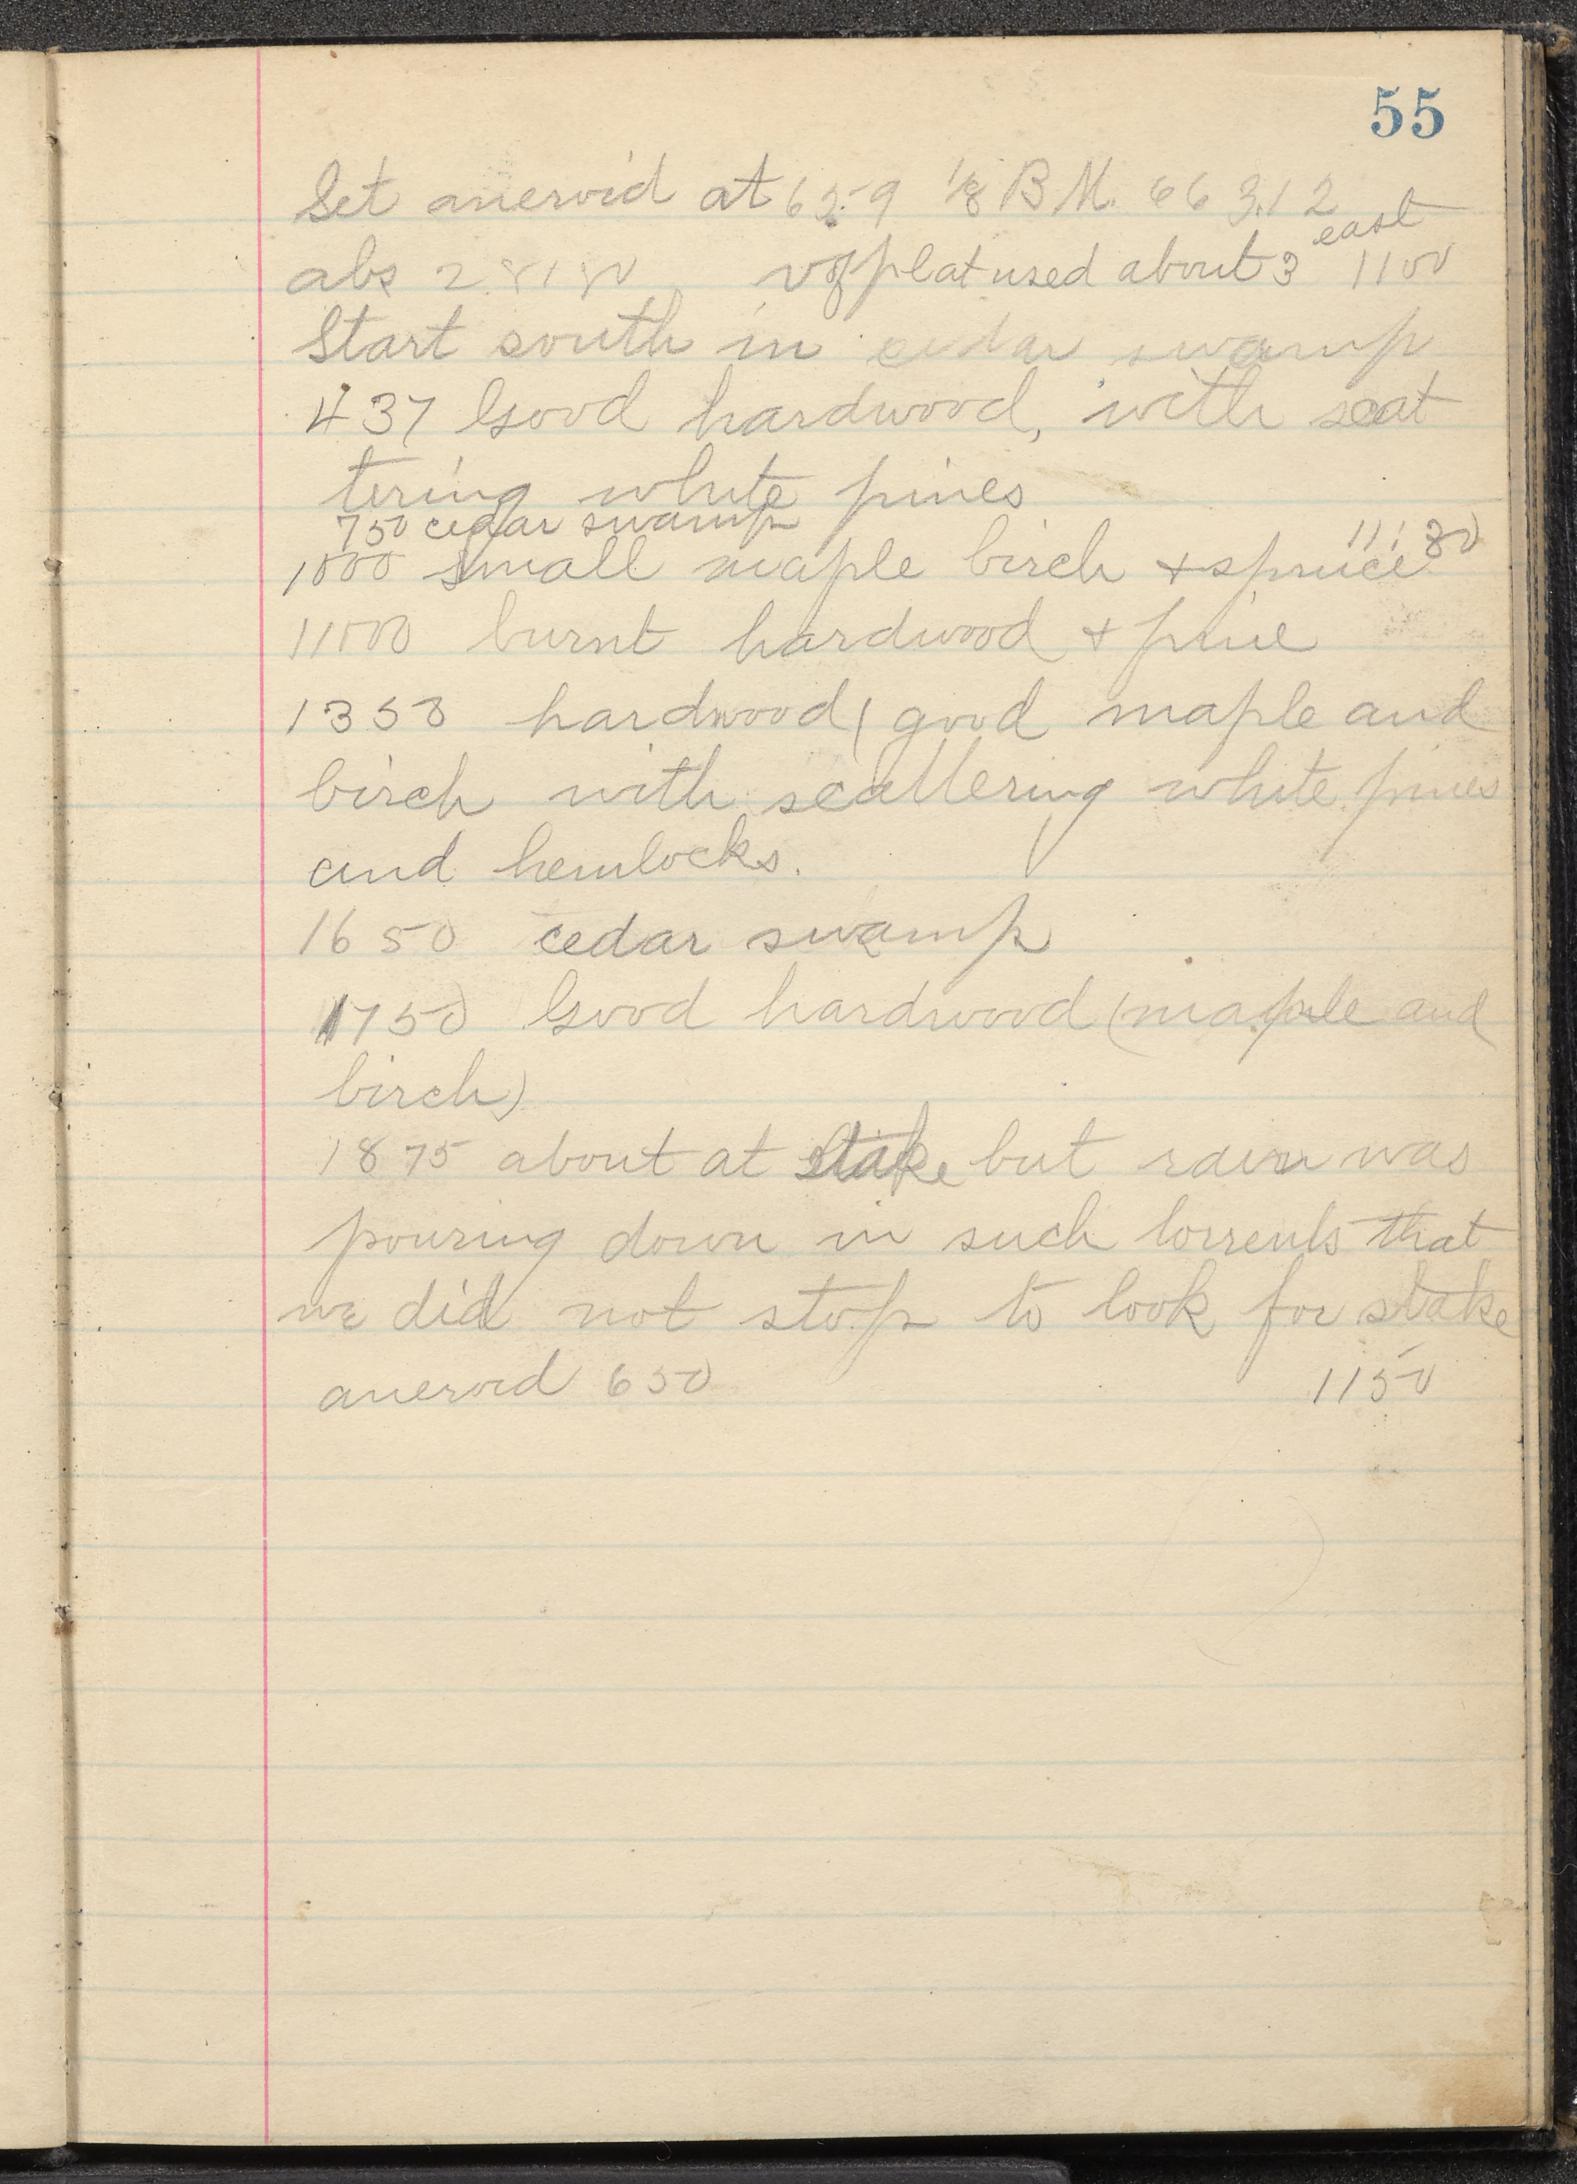 55
Set aneroid at 659 1/8 B M. 663.12
east
abs 2 8180 plat used about 3 1100
Start south in cedar swamp
437 Good hardwood, with scat
tering white pines
750 cedar swamp
11:30
1000 small maple birch + spruce
1100 burnt hardwood + pine
1350 hardwood ( good maple and
birch with scattering white pines
and hemlocks.
1650 cedar swamp
1750 Good hardwood (maple and
birch)
1875 about at stake but rain was
pouring down in such torrents that
we did not stop to look for stake
aneroid 650 1150